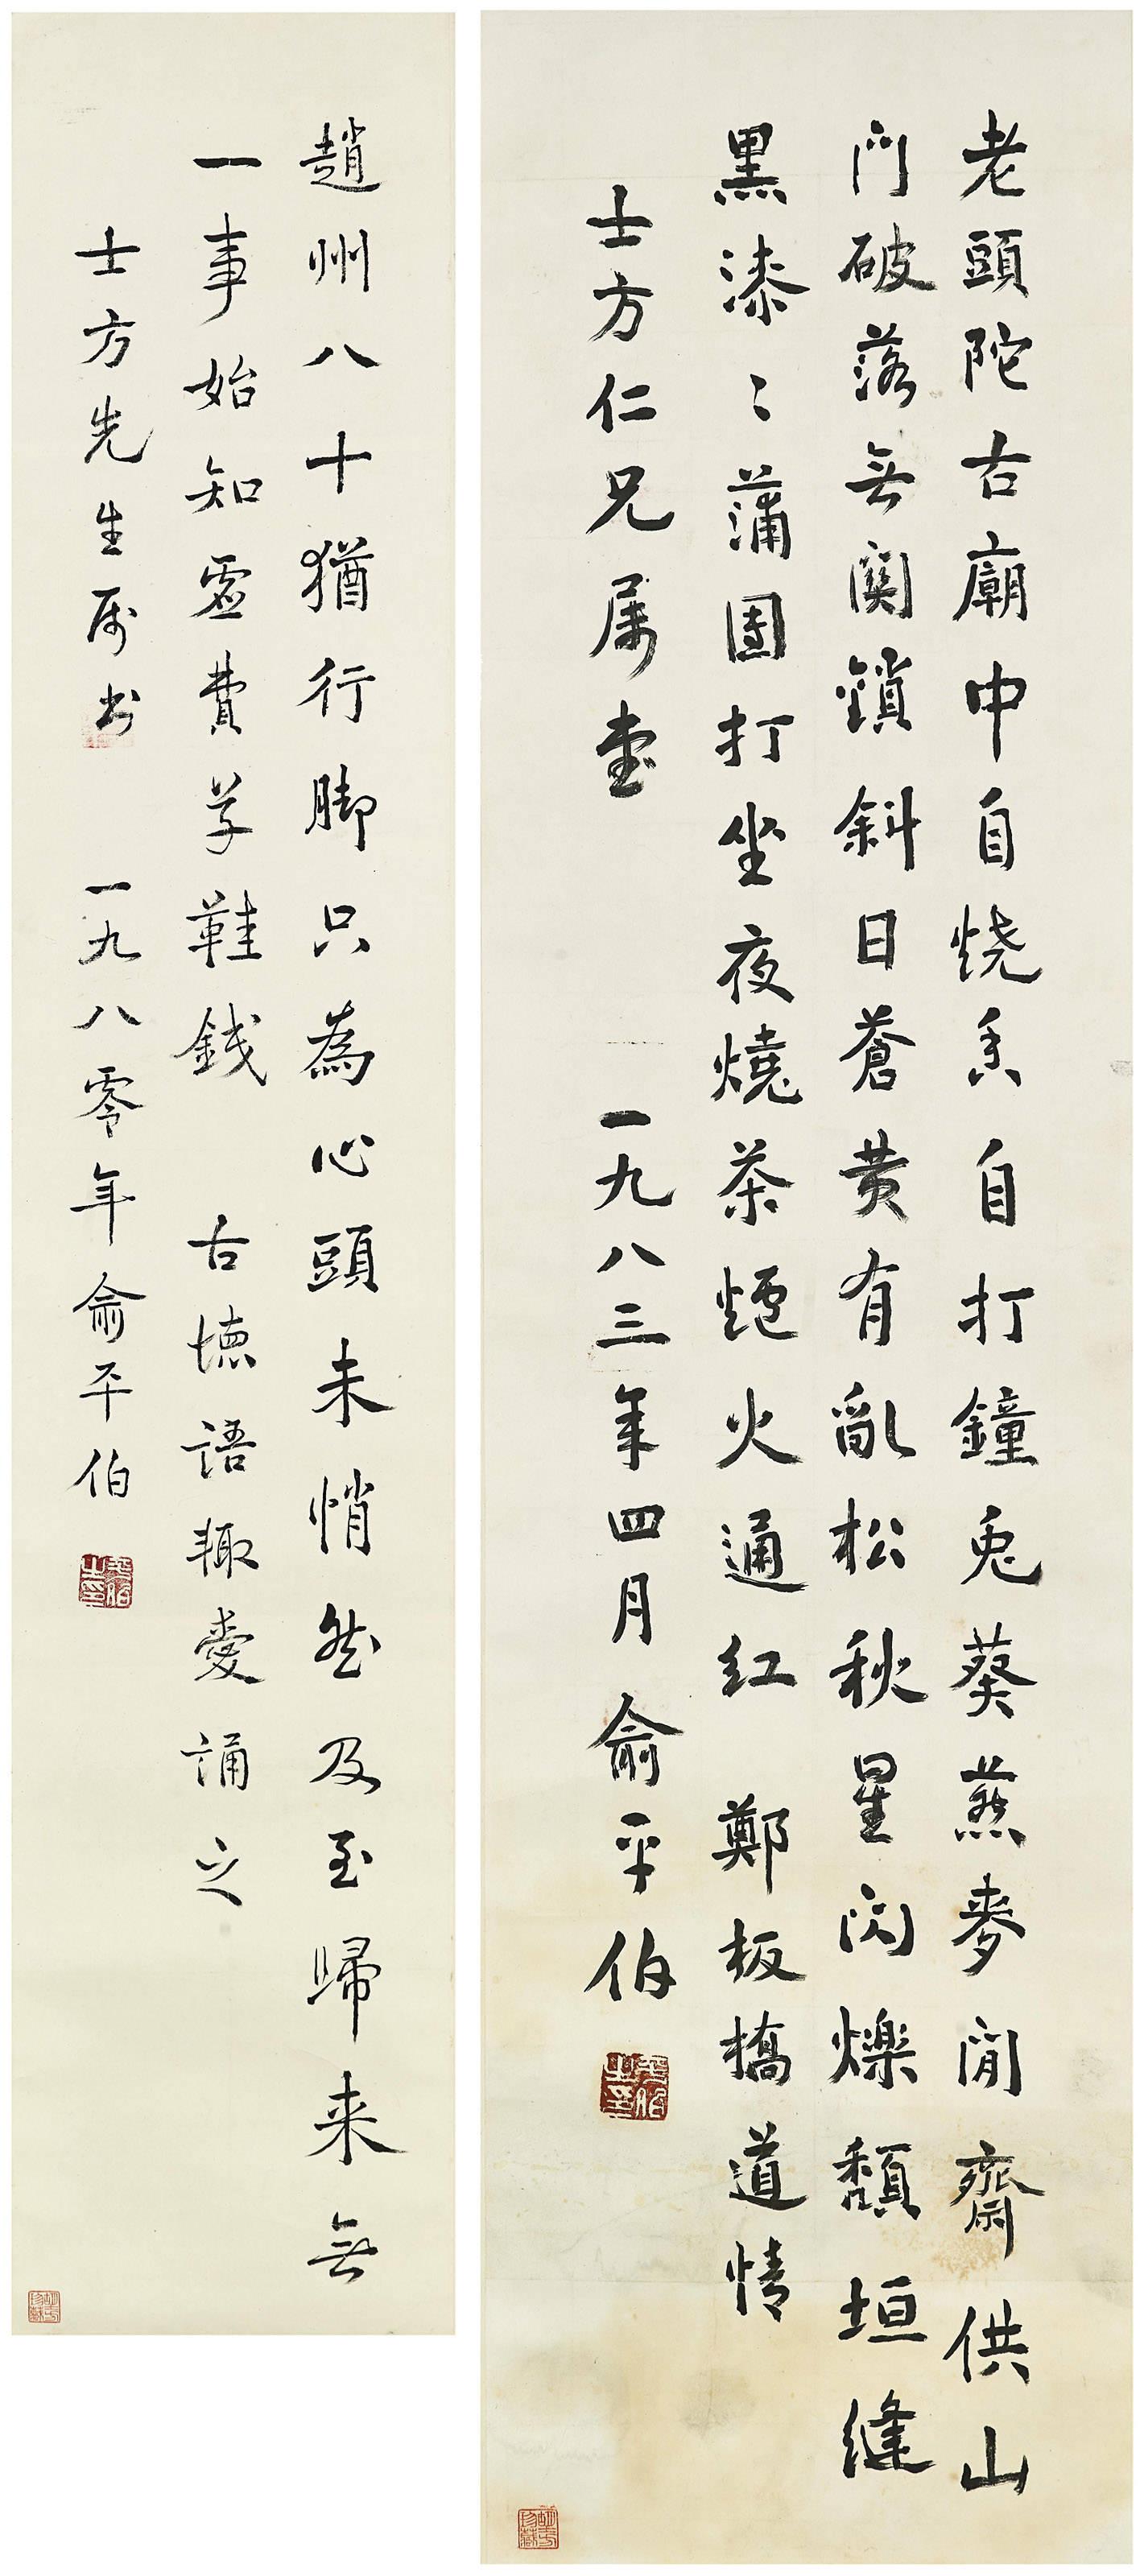 老頭陀古廟中自烧香自打鐘兎葵燕麥閒齋供山
门破落无関鎖斜日蒼黄有亂松秋星闪爍頽垣縫
黑漆〻蒲團打坐夜燒茶爐火通红 鄭板橋道情
士方仁兄属書 一九八三年四月俞平伯
趙州八十猶行脚只為心頭未悄然及至歸来无
一事始知虚費草鞋銭 古德語輙愛誦之
士方先生属书 一九八零年俞平伯